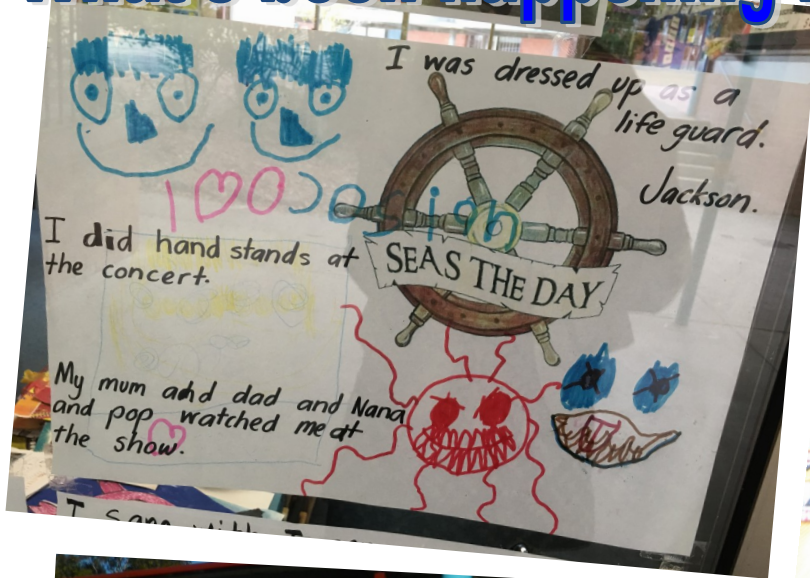 What's been happening
I was dressed up as a
life guard.
Jackson.
I did hand stands at
the concert.
SEAS THE DAY
My mum and dad and Nana
and pop watched me at
the show.